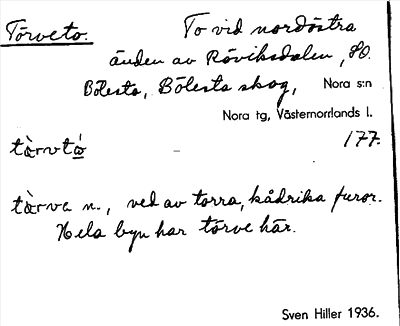 Törveto. To vid nordöstra
änden av Röviksdalen, SO.
Bölesta, Bölesta skog, Nora s:n
Nora tg, Västernorrlands l.
tɑ̀rvtó 177.
tɑ̀rve n., ved av torra, kådrika furor.
Hela byn har törve här.
Sven Hiller 1936.